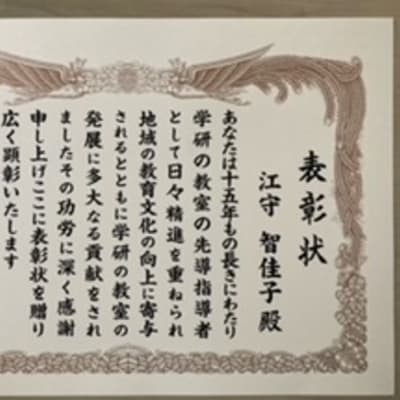 表彰状
江守 智佳子 殿
あなたは十五年もの長きにわたり
学研の教室の先導指導者
として日々精進を重ねられ
地域の教育文化の向上に寄与
されるとともに学研の教室の
発展に多大なる貢献をされ
ましたその功労に深く感謝
申し上げここに表彰状を贈り
広く顕彰いたします